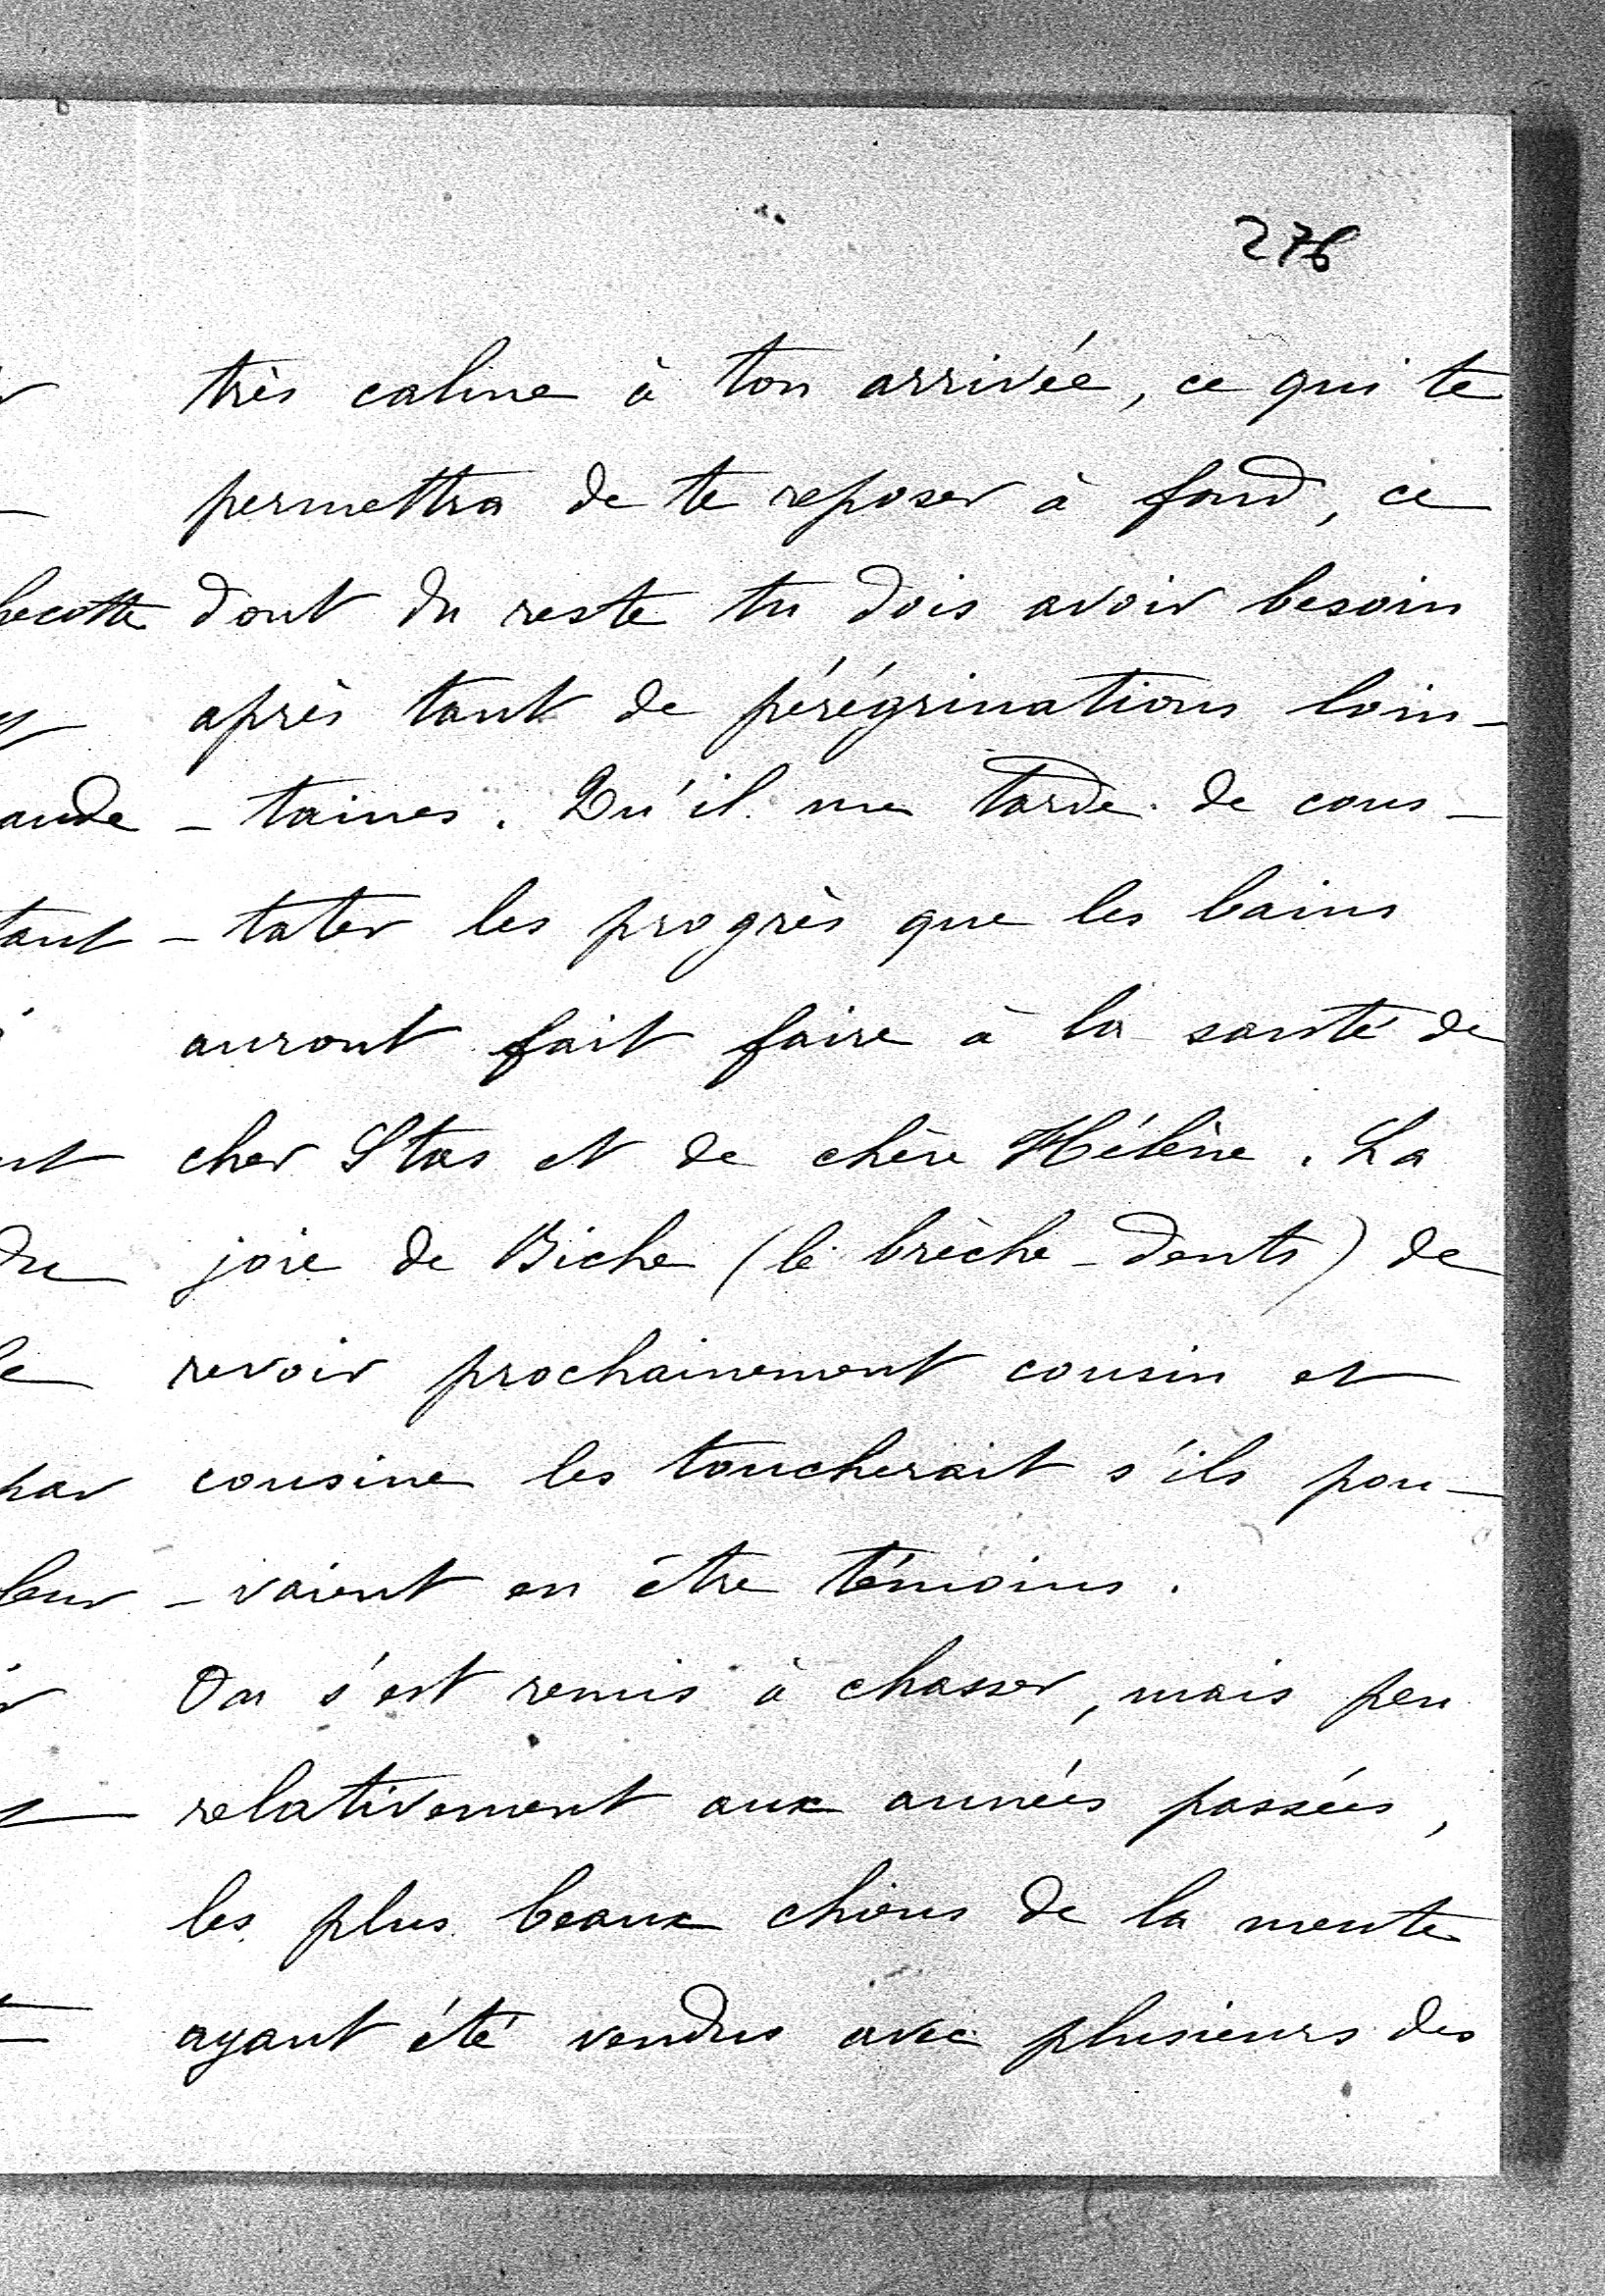 276
très caline à ton arrivée, ce qui te
permettra de te reposer à fond, ce
dont du reste tu dois avoir besoin
après tant de pérégrinations loin-
-taines. Qu'il me tarde de cons-
-tater les progrès que les bains
auront fait faire à la santé de
cher Stas et de chère Hélène. La
joie de Biche (le brèche-dents) de
revoir prochainement cousin et
cousine les toucherait s'ils pou-
-vaient en être témoins.
On s'est remis à chasser, mais peu
relativement aux années passées,
les plus beaux chiens de la meute
ayant été vendus avec plusieurs des